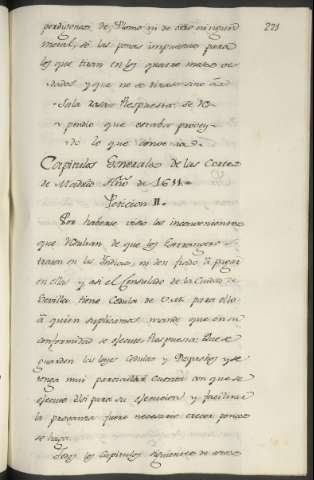 221
perdigones de Plomo ni de otro ningun
metal, so las penas impuestas para
los que tiran en los quatro meses ve
dados y que no se tirase sino à
sola rasa Respuesta se Res
pondio que estaba provey
do lo que convenia.
Capitulos Generales de las Cortes
de Madrid Año de 1611.
Peticion II.
Por haberse visto los inconvenientes
que resultan de que los Estrangeros
traten en las Indias, ni den fiado à pagar
en ellas y asi el Consulado de la Ciudad de
Sevilla tiene Cedula de V.M. para ello
à quien suplicamos mande que en su
conformidad se ejecute Respuesta: Que se
guarden las leyes Cedulas y Despachos y se
tenga mui particular cuenta con que se
ejecute Asi para su ejecucion y facilitar
la probanza fuere necesario crecer penas
se haga.
Todos los Capitulos siguientes de